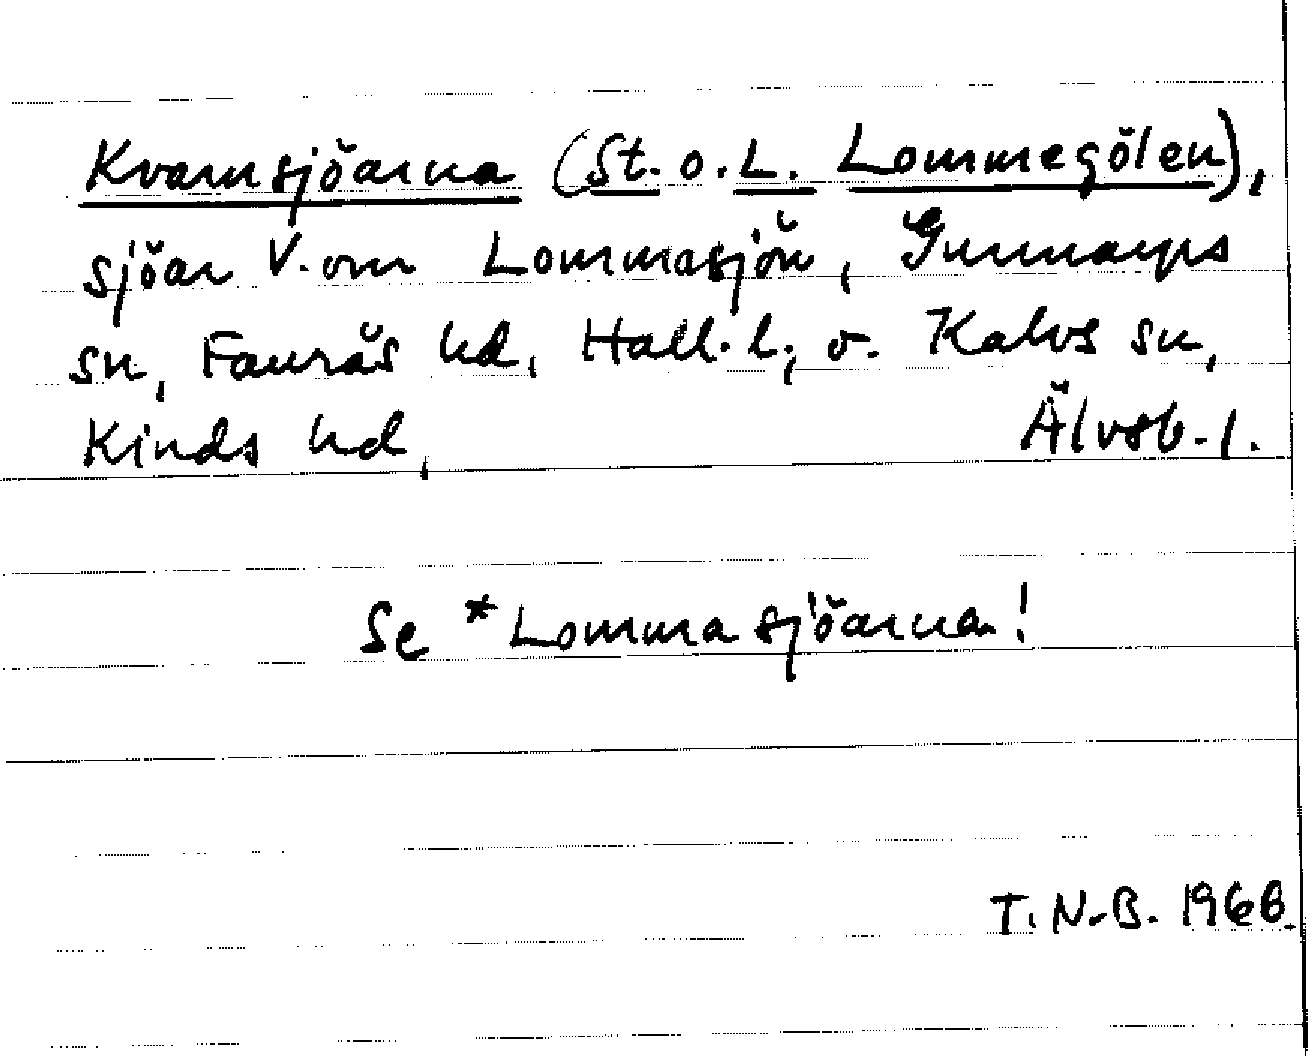 Kvarnsjöarna (St. o. L. Lommegölen),
sjöar V. om Lommasjön, Gunnarps
sn, Faurås hd, Hall. l., o. Kalvs sn,
Kinds hd, Älvsb. l.
Se *Lommasjöarna!
T. N.-B. 1968.